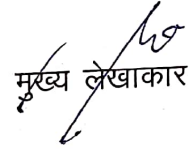 मुख्य लेखाकार